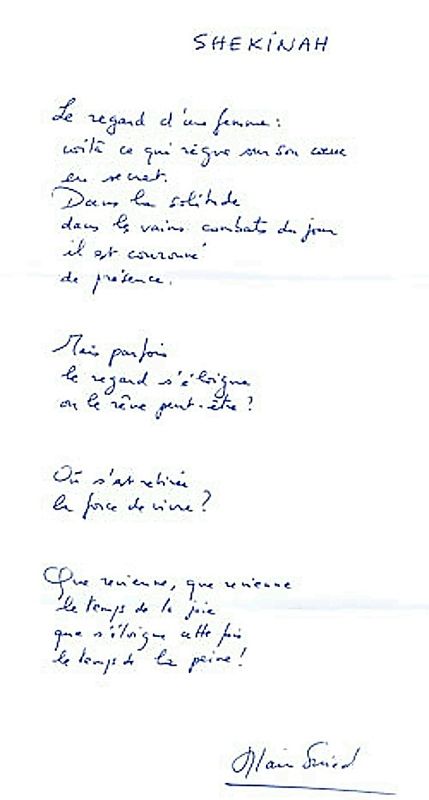 SHEKINAH
Le regard d'une femme :
voilà ce qui règne sur son cœur
en secret.
Dans la solitude
dans les vains combats du jour
il est couronné
de présence.
Mais parfois
le regard s'éloigne
ou le rêve peut-être ?
Où s'est retirée
la force de vivre ?
Que revienne, que revienne
le temps de la joie
que s'éloigne cette fois
le temps de la peine !
Alain Suied